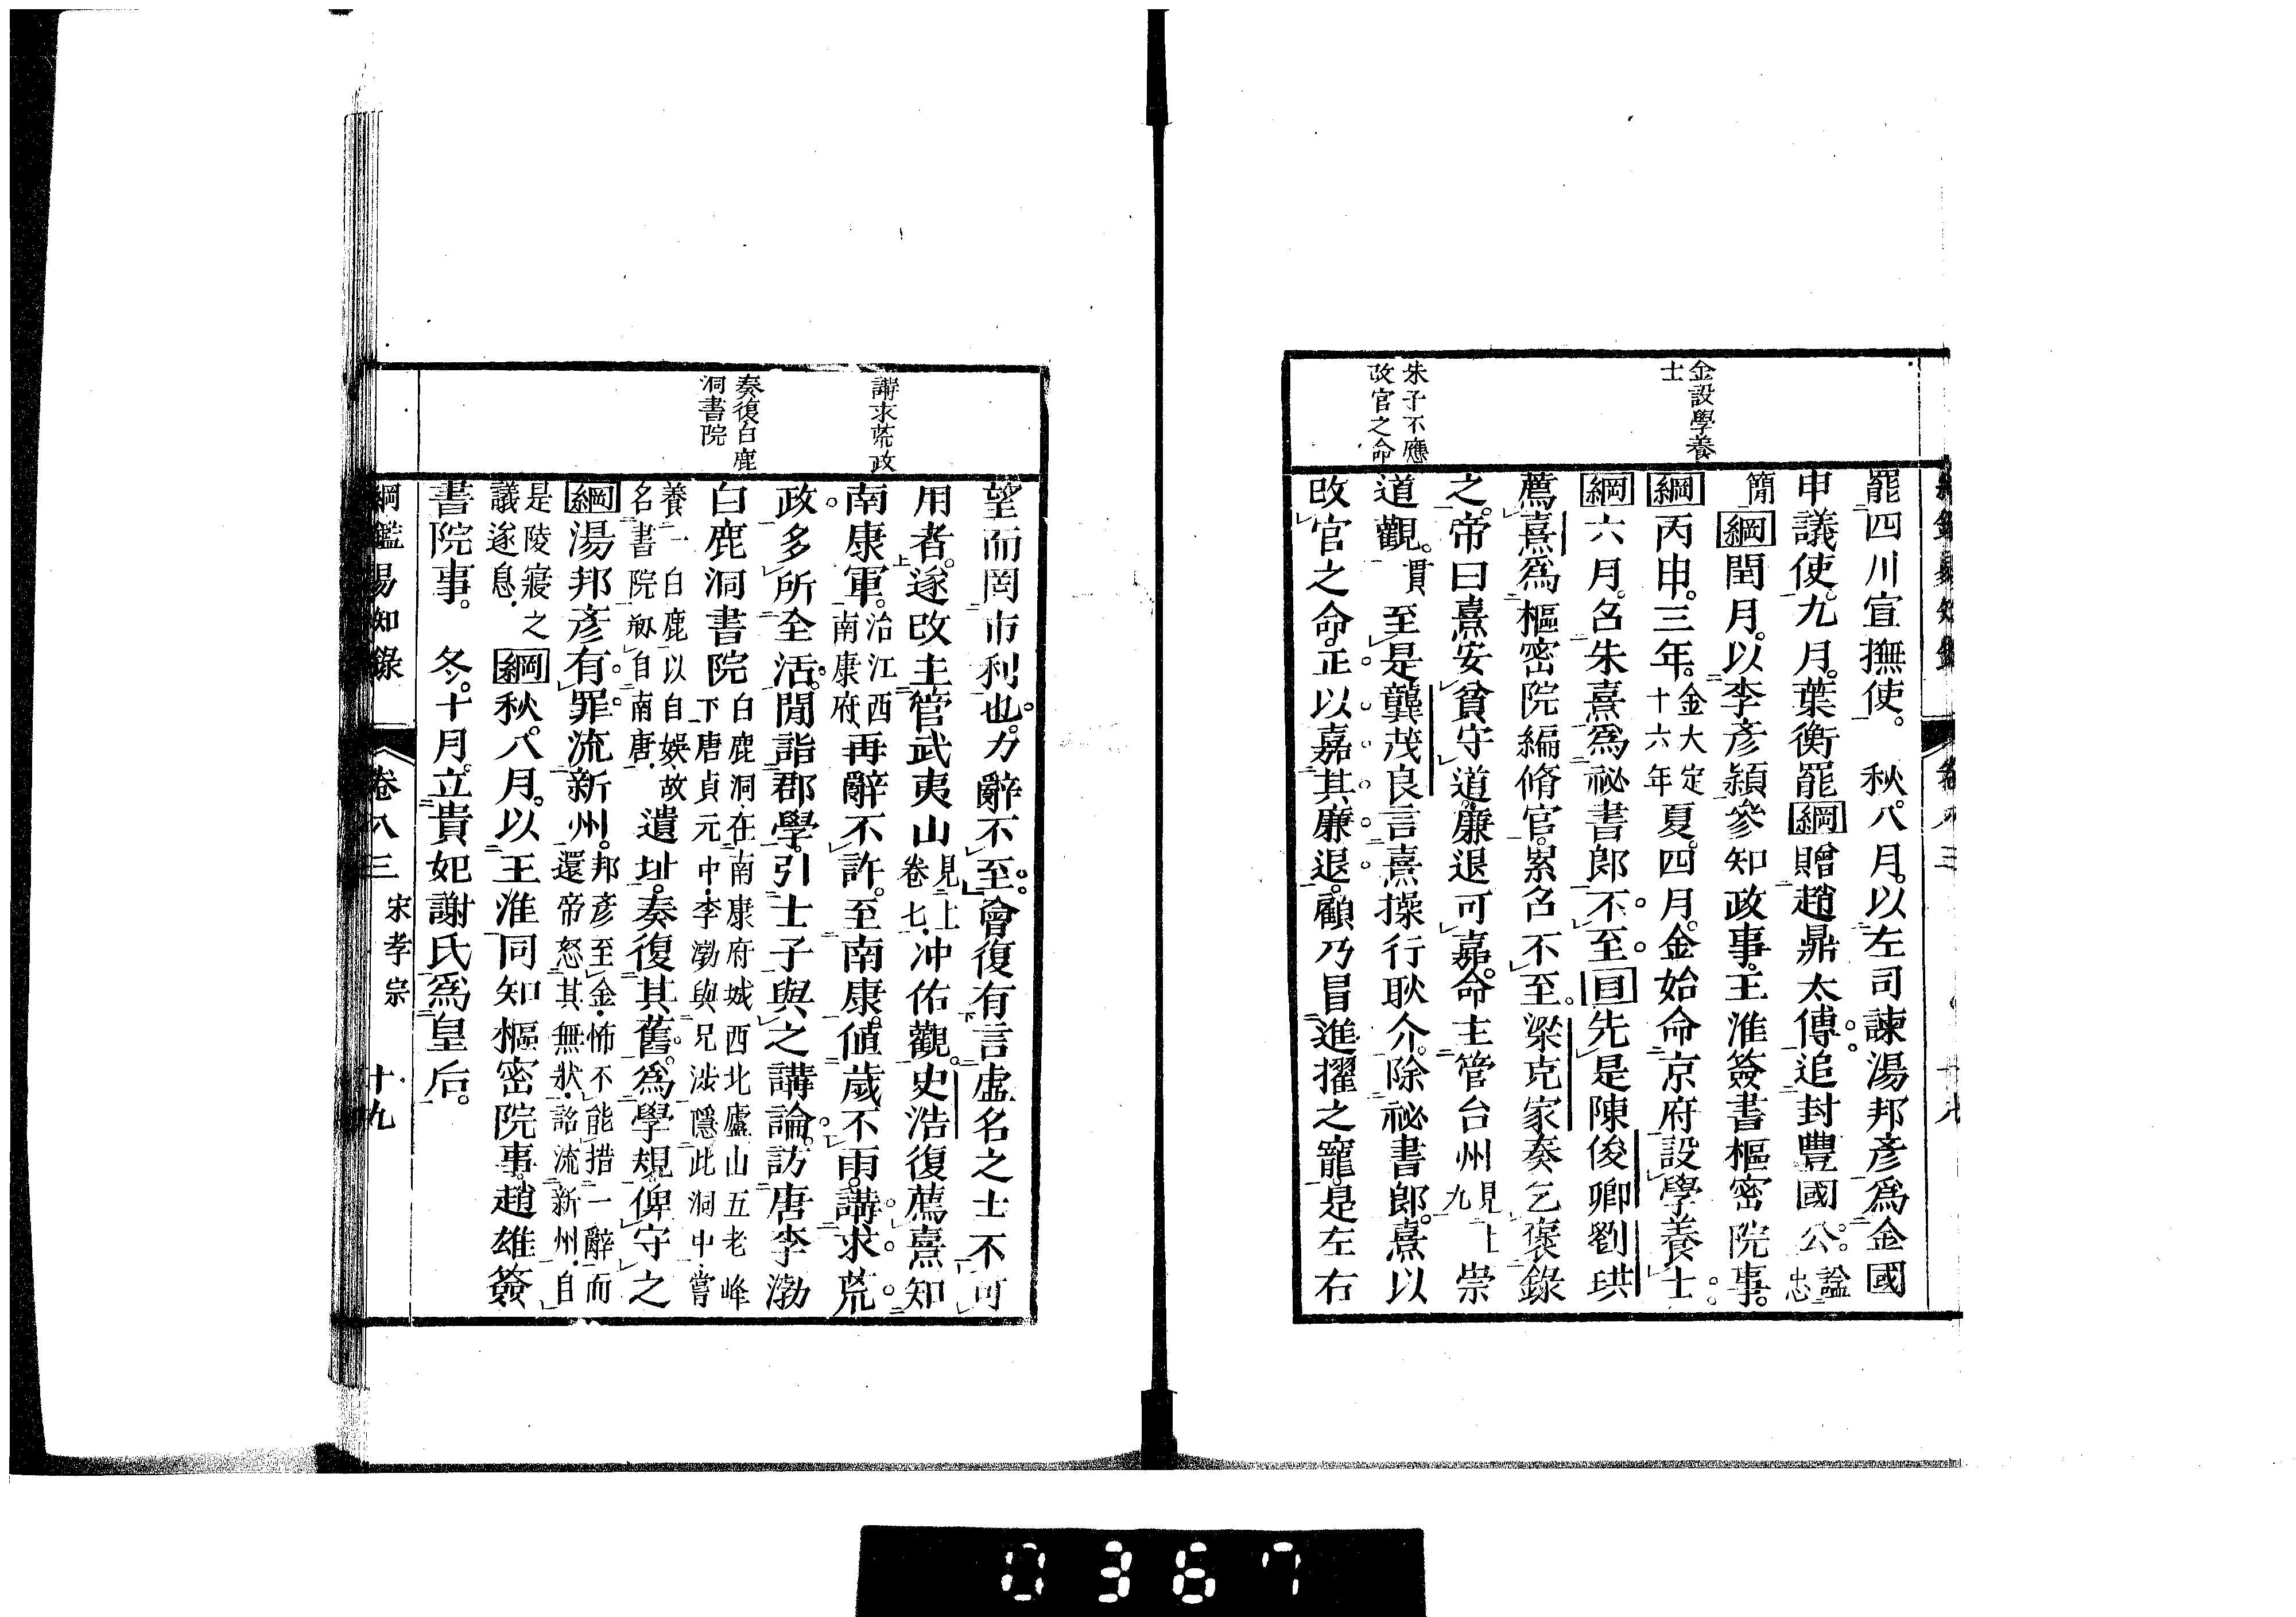 金設學養
士
朱子不應
改官之命
罷四川宣撫使。秋八月。以左司諫湯邦彥爲金國
申議使。九月。葉衡罷綱贈趙鼎太傅。追封豐國公。諡忠
簡綱閏月。以李彥頴參知政事。王淮簽書樞密院事。
綱丙申。三年。金大定十六年夏。四月。金始命京府設學養士。
綱六月。召朱熹爲祕書郎。不至。目先是陳俊卿劉珙
薦熹爲樞密院編脩官。累召不至。梁克家奏乞褒錄
之。帝曰熹安貧守道。廉退可嘉。命主管台州見上九崇
道觀。貫至是龔茂良言熹操行耿介。除祕書郎。熹以
改官之命。正以嘉其廉退。顧乃冒進擢之寵。是左右
謝求荒政
奏復白鹿
洞書院
望而罔市利也。力辭不至。會復有言虛名之士不可
用者。遂改主管武夷山見上卷七冲佑觀。史浩復薦熹知
南康軍。治江西南康府再辭不許。至南康。値歲不雨。講求荒
政。多所全活。閒詣郡學。引士子與之講論。訪唐李渤
白鹿洞書院白鹿洞在南康府城西北廬山五老峰下唐貞元中李渤與兄涉隱此洞中嘗
養一白鹿以自娛故名書院剙自南唐遺址。奏復其舊。爲學規俾守之
綱湯邦彥有罪。流新州。邦彥至金怖不能措一辭而還帝怒其無狀詔流新州自
是陵寢之議遂息綱秋。八月。以王淮同知樞密院事。趙雄簽
書院事。冬。十月。立貴妃謝氏爲皇后。
綱鑑易知錄 卷八三 宋孝宗 十九
0367